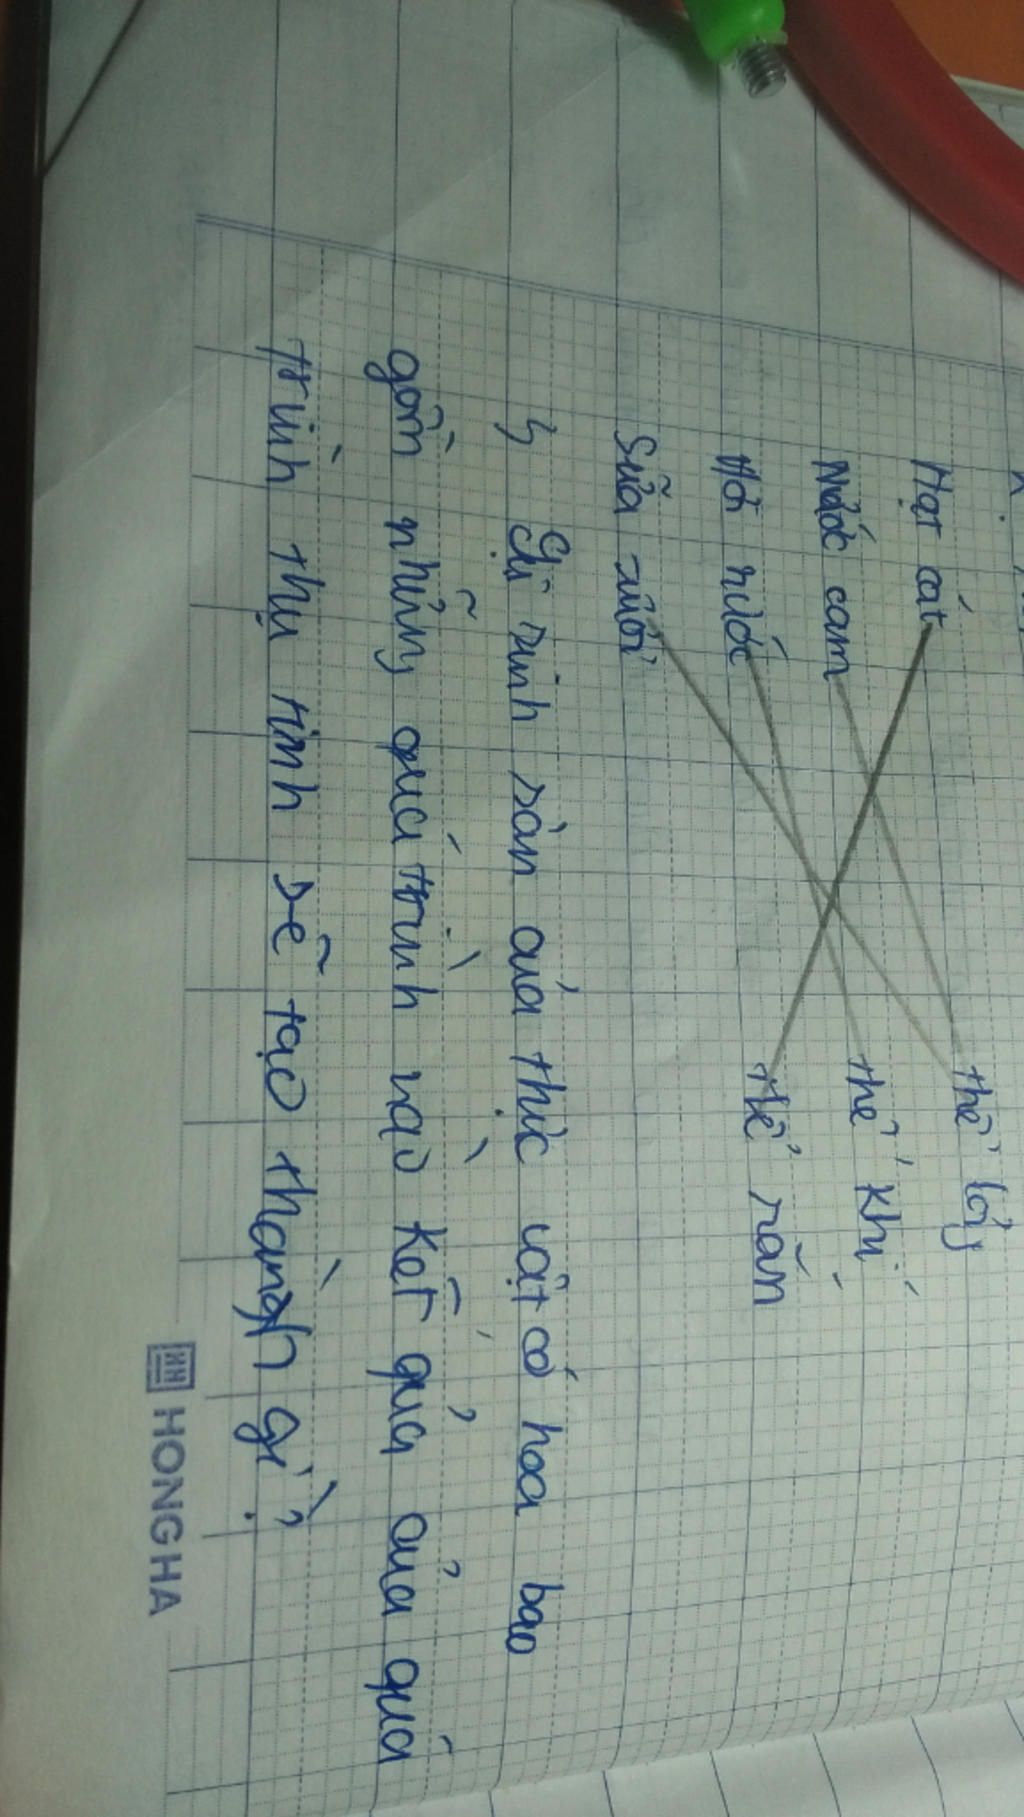 Hạt cát thể lỏng
Nước cam thể khí
Hơi nước thể rắn
Sữa tươi
Sự sinh sản của thực vật có hoa bao
gồm những quá trình nào Kết quả của quá
trình thụ tinh sẽ tạo thành gì?
HONG HA